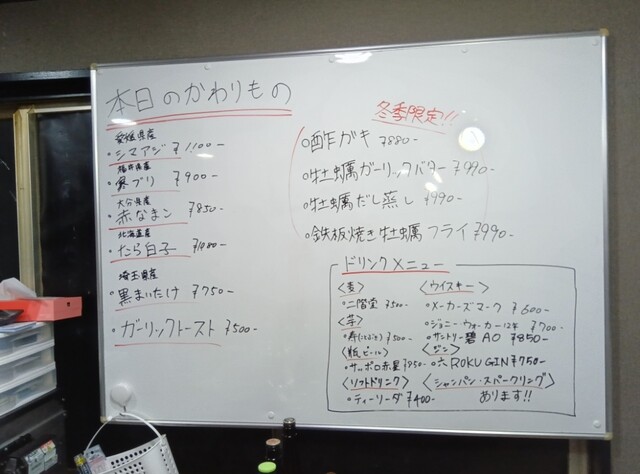 本日のかわりもの
愛媛県産
・シマアジ ¥1100-
福井県産
・寒ブリ ¥900-
大分県産
・赤なまこ ¥850-
北海道産
・たら白子 ¥1480-
埼玉県産
・黒まいたけ ¥750-
・ガーリックトースト ¥500-
冬季限定!!
○酢ガキ ¥880-
○牡蠣ガーリックバター ¥990-
○牡蠣だし蒸し ¥990-
○鉄板焼き牡蠣フライ ¥990-
ドリンクメニュー
〈麦〉
○二階堂 ¥500-
〈芋〉
○寿 ¥500-
〈瓶ビール〉
○サッポロ赤星 ¥950-
〈ソフトドリンク〉
○ティーソーダ ¥400-
〈ウイスキー〉
○メーカーズマーク ¥600-
○ジョニーウォーカー12年 ¥700-
○サントリー碧AO ¥850-
〈ジン〉
○六 ROKU GIN ¥750-
〈シャンパン・スパークリング〉
あります!!